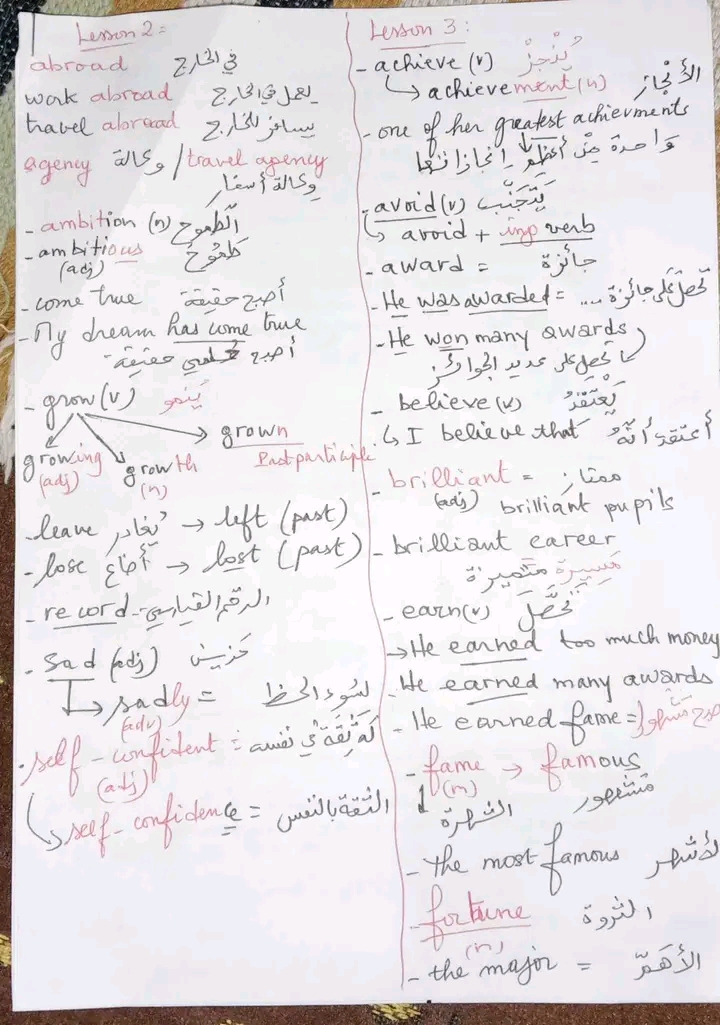 Lesson 2 :
abroad في الخارج
work abroad يعمل في الخارج
travel abroad يسافر للخارج
agency وكالة / travel agency
وكالة أسفار
- ambition (n) الطموح
- ambitious طموح
(adj)
- come true أصبح حقيقة
- My dream has come true
أصبح حلمي حقيقة
- grow (v) ينمو
grown
Past participle
growing
(adj)
growth
(n)
- leave يغادر → left (past)
- lose أضاع → lost (past)
- record - الرقم القياسي
- Sad (adj) حزين
→ sadly = لسوء الحظ
(adv)
- self-confident = له ثقة في نفسه
(adj)
→ self-confidence = الثقة بالنفس
Lesson 3 :
- achieve (v) يُنْجِزُ
→ achievement (n) الأنجاز
- one of her greatest achievments
واحدة من أعظم إنجازاتها
- avoid (v) يَتَجَنَّب
→ avoid + ing verb
- award = جائزة
- He was awarded = تحصل على جائزة ....
- He won many awards
تحصل على عديد الجوائز
- believe (v) يَعْتَقِدُ
↳ I believe that أعتقد أنّهُ
- brilliant = ممتاز
(adj) brilliant pupils
- brilliant career
مَسِيرة متميزة
- earn (v) تَحَصَّلَ
→ He earned too much money
- He earned many awards
- He earned fame = أصبح مشهورا
- fame → famous
(n) مشهور
الشهرة
- the most famous الأشهر
- fortune الثروة
(n)
- the major = الأهمّ